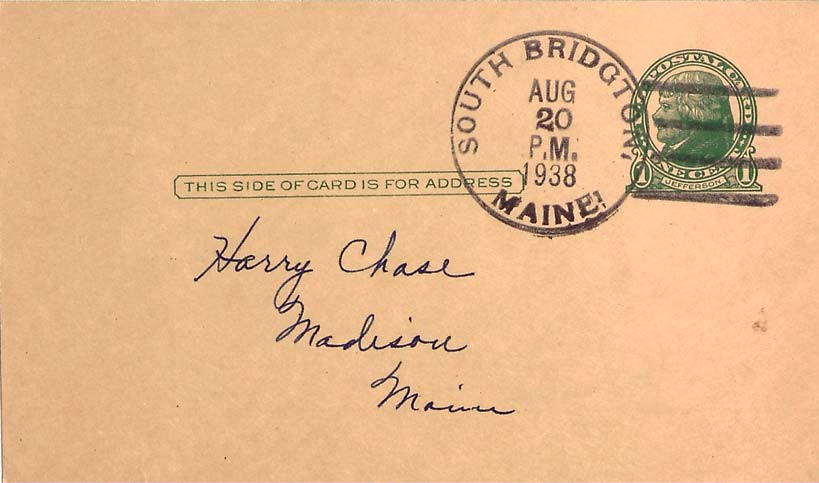 SOUTH BRIDGTON,
AUG
20
P.M.
1938
MAINE
POSTAL CARD
ONE CENT
1 JEFFERSON 1
THIS SIDE OF CARD IS FOR ADDRESS
Harry Chase
Madison
Maine